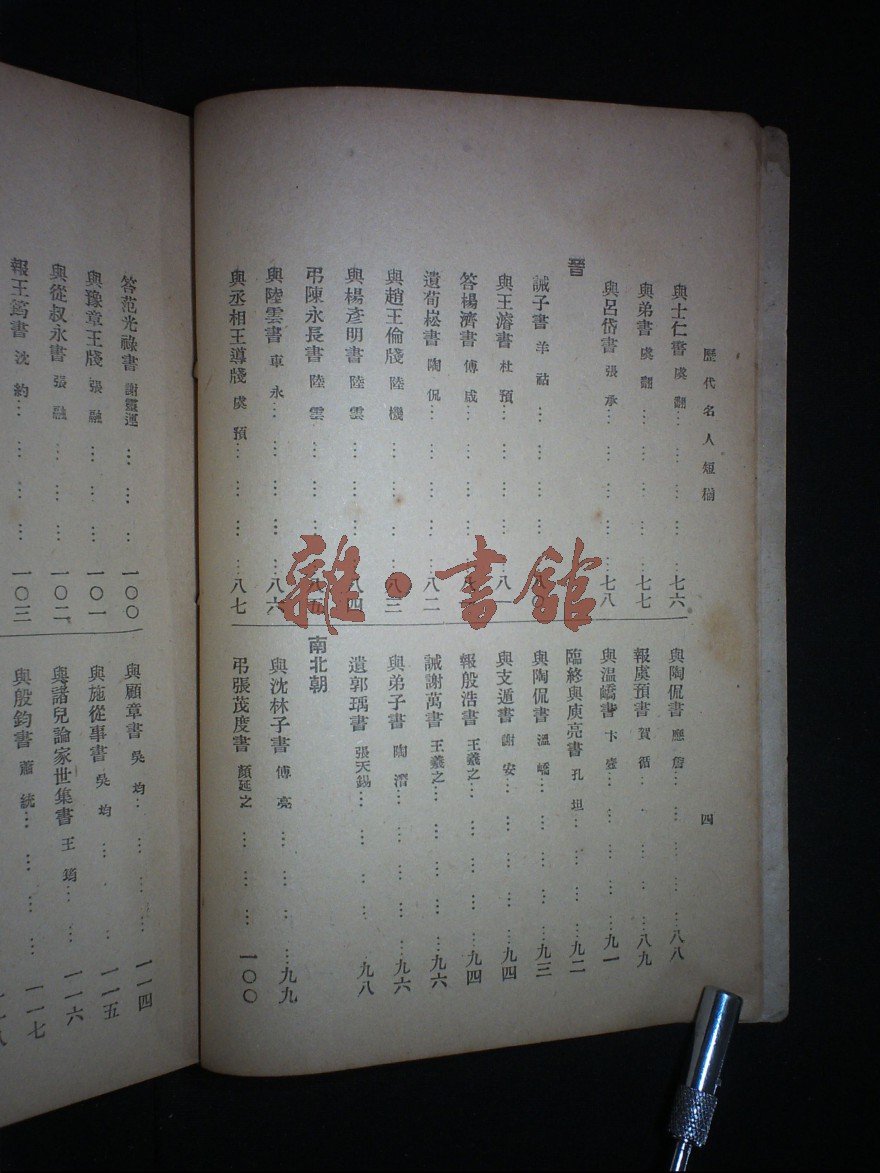 歷代名人短椾
四
與士仁書 虞翻………七六
與弟書 虞翻………七七
與呂岱書 張承………七八
晉
誡子書 羊祜………八
與王濬書 杜預………八
答楊濟書 傅咸………八
遺荀崧書 陶侃………八二
與趙王倫牋 陸機………八三
與楊彥明書 陸雲………八四
弔陳永長書 陸雲………八五
與陸雲書 車永………八六
與丞相王導牋 虞預………八七
與陶侃書 應詹………八八
報虞預書 賀循………八九
與温嶠書 卞壼………九一
臨終與庾亮書 孔坦………九二
與陶侃書 溫嶠………九三
與支遁書 謝安………九四
報殷浩書 王羲之………九四
誡謝萬書 王羲之………九六
與弟子書 陶潛………九六
遺郭瑀書 張天錫………九八
南北朝
與沈林子書 傅亮………九九
弔張茂度書 顏延之………一〇〇
答范光祿書 謝靈運………一〇〇
與豫章王牋 張融………一〇一
與從叔永書 張融………一〇二
報王筠書 沈約………一〇三
與顧章書 吳均………一一四
與施從事書 吳均………一一五
與諸兒論家世集書 王筠………一一六
與殷鈞書 蕭統………一一七
雜·書館